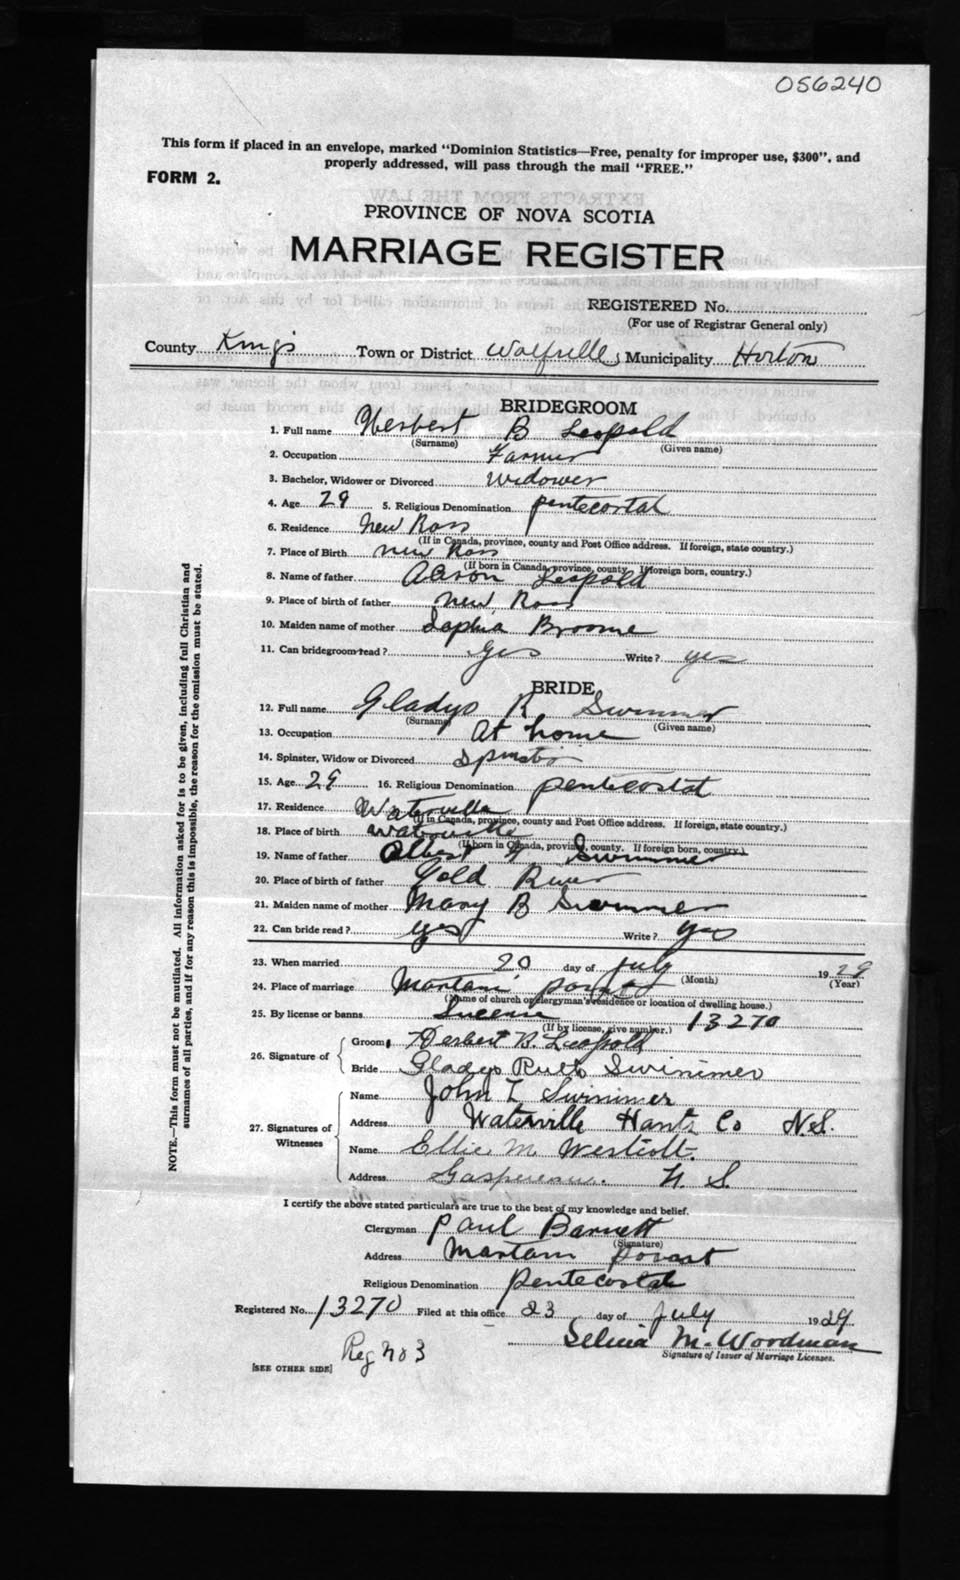 056240
This form if placed in an envelope, marked "Dominion Statistics—Free, penalty for improper use, $300", and
properly addressed, will pass through the mail "FREE."
FORM 2.
PROVINCE OF NOVA SCOTIA
MARRIAGE REGISTER
REGISTERED No.
(For use of Registrar General only)
County Kings Town or District Wolfville, Municipality Horton
BRIDEGROOM
1. Full name Herbert B Leopold
(Surname) (Given name)
2. Occupation Farmer
3. Bachelor, Widower or Divorced Widower
4. Age 29 5. Religious Denomination pentecostal
6. Residence New Ross
(If in Canada, province, county and Post Office address. If foreign, state country.)
7. Place of Birth New Ross
(If born in Canada, province, county. If foreign born, country.)
8. Name of father Aaron Leopold
9. Place of birth of father New Ross
10. Maiden name of mother Sophia Broome
11. Can bridegroom read? Yes Write? yes
BRIDE
12. Full name Gladys R Swinimer
(Surname) (Given name)
13. Occupation At home
14. Spinster, Widow or Divorced Spinster
15. Age 29 16. Religious Denomination pentecostal
17. Residence Waterville
(If in Canada, province, county and Post Office address. If foreign, state country.)
18. Place of birth Waterville
(If born in Canada, province, county. If foreign born, country.)
19. Name of father Albert Swinimer
20. Place of birth of father Gold River
21. Maiden name of mother Mary B Swinimer
22. Can bride read? yes Write? yes
23. When married 20 day of July 1929
(Month) (Year)
24. Place of marriage
(Name of church or clergyman's residence or location of dwelling house.)
25. By license or banns License 13270
(If by license, give number.)
26. Signature of
Groom Herbert B. Leopold
Bride Gladys Ruth Swinimer
27. Signatures of Witnesses
Name John L Swinimer
Address Waterville Hants Co N.S.
Name Ellie M Westcott.
Address Gaspereau. N. S.
I certify the above stated particulars are true to the best of my knowledge and belief.
Clergyman Paul Barnett
(Signature)
Address
Religious Denomination Pentecostal
Registered No. 13270 Filed at this office 23 day of July 1929
Selina M. Woodman
Signature of Issuer of Marriage Licenses.
Reg no 3
[SEE OTHER SIDE]
NOTE.—This form must not be mutilated. All information asked for is to be given, including full Christian and
surnames of all parties, and if for any reason this is impossible, the reason for the omission must be stated.